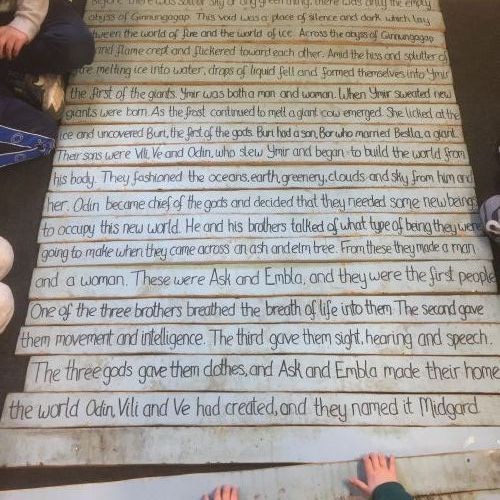 Before there was soil or sky or any green thing, there was only the empty
abyss of Ginnungagap. This void was a place of silence and dark which lay
between the world of fire and the world of ice. Across the abyss of Ginnungagap
and flame crept and flickered toward each other. Amid the hiss and splutter of
fire melting ice into water, drops of liquid fell and formed themselves into Ymir
the first of the giants. Ymir was both a man and woman. When Ymir sweated new
giants were born. As the frost continued to melt a giant cow emerged. She licked at the
ice and uncovered Buri, the first of the gods. Buri had a son, Bor who married Bestla, a giant.
Their sons were Vili, Ve and Odin, who slew Ymir and began to build the world from
his body. They fashioned the oceans, earth, greenery, clouds and sky from him and
her. Odin became chief of the gods and decided that they needed some new beings
to occupy this new world. He and his brothers talked of what type of being they were
going to make when they came across an ash and elm tree. From these they made a man
and a woman. These were Ask and Embla, and they were the first people
One of the three brothers breathed the breath of life into them. The second gave
them movement and intelligence. The third gave them sight, hearing and speech.
The three gods gave them clothes, and Ask and Embla made their home
the world Odin, Vili and Ve had created, and they named it Midgard.